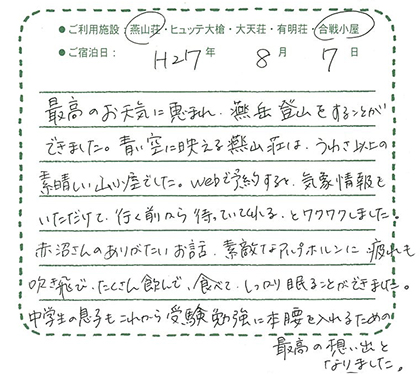 ●ご利用施設：燕山荘・ヒュッテ大槍・大天荘・有明荘・合戦小屋
●ご宿泊日： H27年 8月 7日
最高のお天気に恵まれ、燕岳登山をすることが
できました。青い空に映える燕山荘は、うわさ以上の
素晴しい山小屋でした。webで予約すると、気象情報を
いただけて、行く前から待っていてくれる、とワクワクしました。
赤沼さんのありがたいお話、素敵なアルプホルンに疲れも
吹き飛び、たくさん飲んで、食べて、しっかり眠ることができました。
中学生の息子もこれから受験勉強に本腰を入れるための
最高の想い出と
なりました。